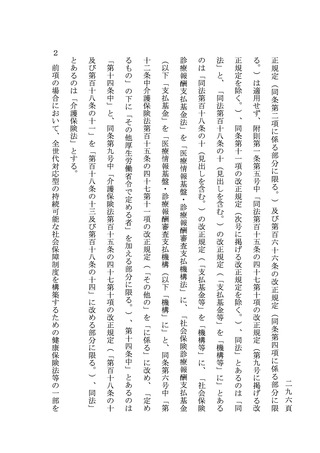 二九六頁
正規定（同条第二項に係る部分に限る。）及び第六十六条の改正規定（同条第四項に係る部分に限
る。）は適用せず、附則第一条第五号中「同法第百十五条の四十七第十項の改正規定（第九号に掲げる改
正規定を除く。）、同条第十一項の改正規定（次号に掲げる改正規定を除く。）、同法」とあるのは「同
法」と、「同法第百十八条の十（見出しを含む。）の改正規定（「支払基金等」を「機構等」に」とある
のは「同法第百十八条の十（見出しを含む。）の改正規定（「支払基金等」を「機構等」に、「社会保険
診療報酬支払基金法」を「医療情報基盤・診療報酬審査支払機構法」に、「社会保険診療報酬支払基金
（以下「支払基金」を「医療情報基盤・診療報酬審査支払機構（以下「機構」に」と、同条第六号中「第
十二条中介護保険法第百十五条の四十七第十一項の改正規定（「その他の」を「に係る」に改め、「定め
るもの」の下に「その他厚生労働省令で定める者」を加える部分に限る。）、第十四条中」とあるのは
「第十四条中」と、同条第九号中「介護保険法第百十五条の四十七第十項の改正規定（「第百十八条の十
及び第百十八条の十一」を「第百十八条の十三及び第百十八条の十四」に改める部分に限る。）、同法」
とあるのは「介護保険法」とする。
２　前項の場合において、全世代対応型の持続可能な社会保障制度を構築するための健康保険法等の一部を